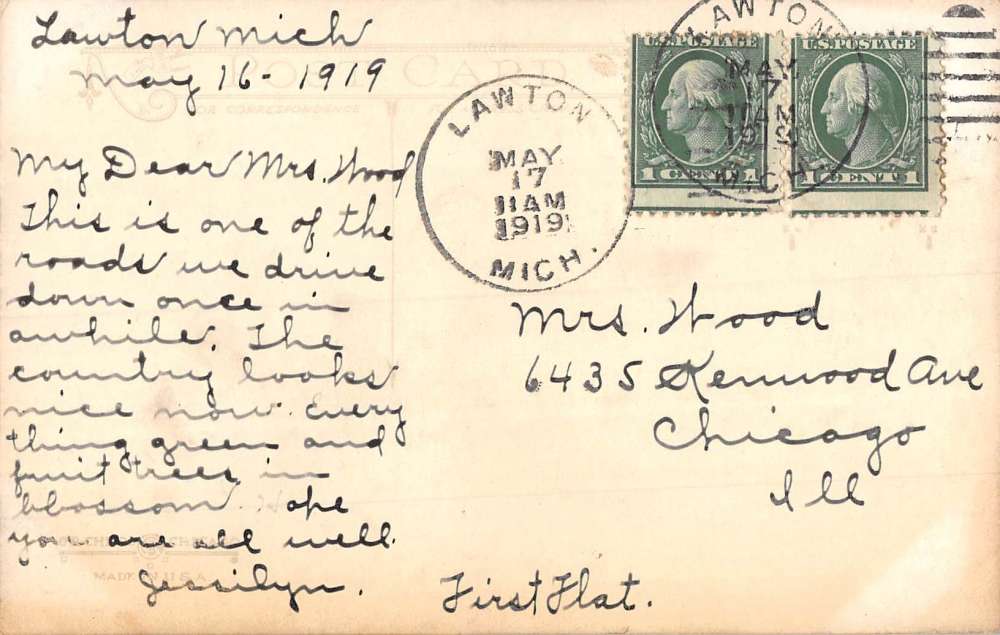 Lawton Mich
May 16 - 1919
POST CARD
FOR CORRESPONDENCE
My Dear Mrs. Wood
This is one of the
roads we drive
down once in
awhile. The
country looks
nice now. Every
thing green and
fruit trees in
blossom. Hope
you are all well.
Jessilyn.
CHICAGO
MADE IN U.S.A.
LAWTON
MAY
17
11 AM
1919
MICH.
U.S. POSTAGE
1 CENT 1
U.S. POSTAGE
1 CENT 1
LAWTON
MAY
17
11 AM
1919
MICH.
Mrs. Wood
6435 Kenwood Ave
Chicago
Ill
First Flat.